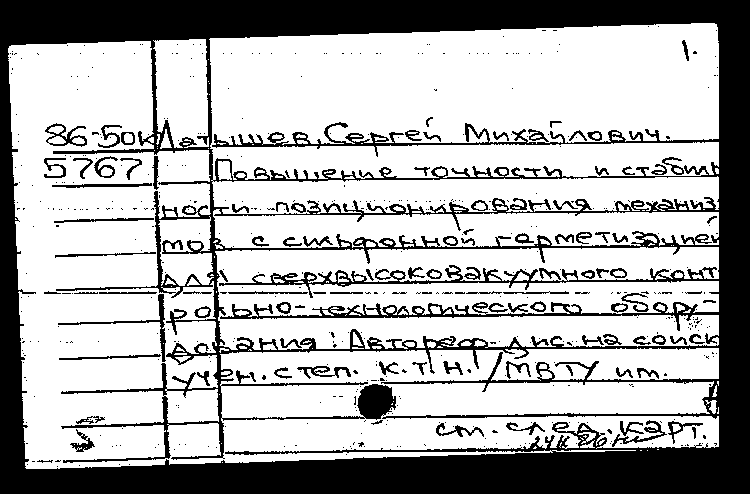 1.
86-50к Латышев, Сергей Михайлович.
5767 Повышение точности и стабиль
ности позиционирования механиз
мов с сильфонной герметизацией
для сверхвысоковакуумного конт
рольно-технологического обору-
дования: Автореф. дис. на соиск
учен. степ. к.т.н. / МВТУ им.
см. след. карт.